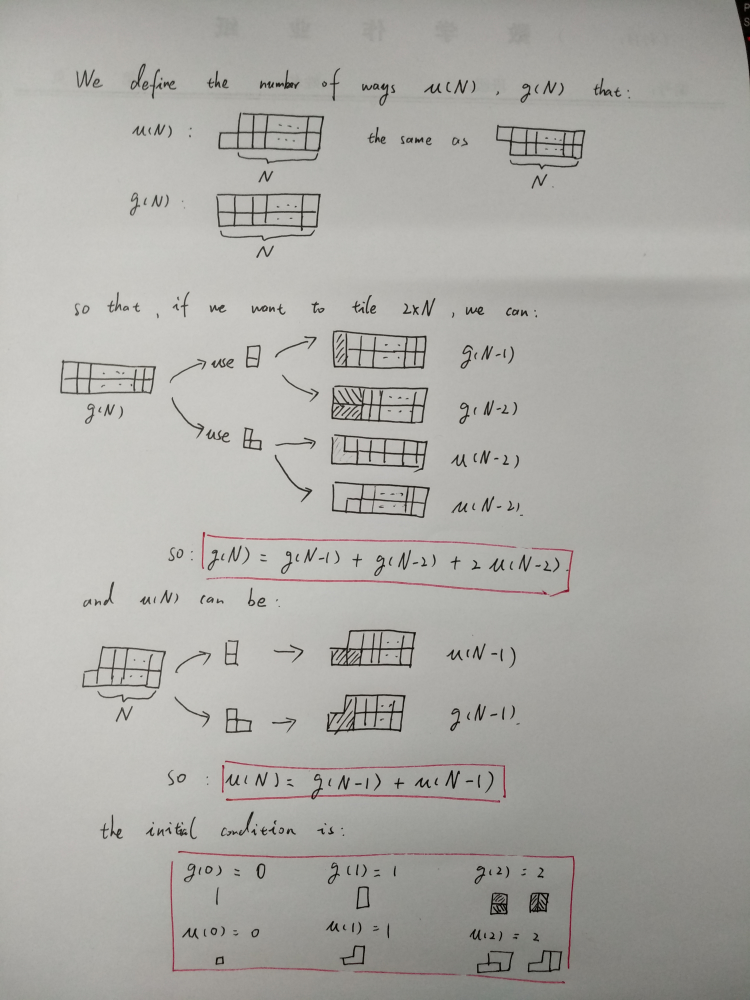 We define the number of ways u(N), g(N) that:
u(N) : the same as
N N.
g(N) :
N
so that, if we want to tile 2xN, we can:
use g(N-1)
g(N) g(N-2)
use u(N-2)
u(N-2).
so: g(N) = g(N-1) + g(N-2) + 2 u(N-2).
and u(N) can be:
u(N-1)
N g(N-1).
so : u(N) = g(N-1) + u(N-1)
the initial condition is:
g(0) = 0 g(1) = 1 g(2) = 2
u(0) = 0 u(1) = 1 u(2) = 2